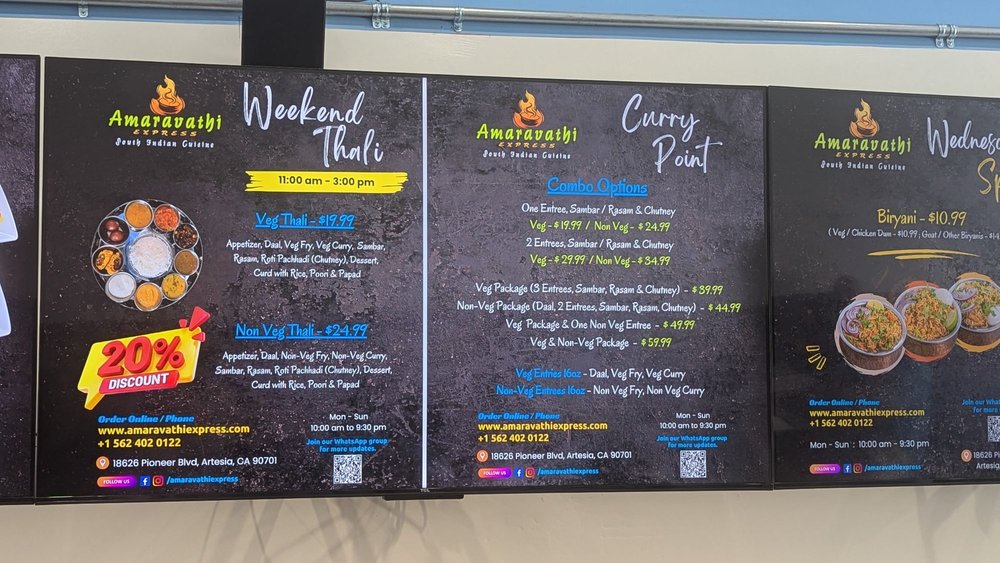 Amaravathi
EXPRESS
South Indian Cuisine
Weekend
Thali
11:00 am - 3:00 pm
Veg Thali - $19.99
Appetizer, Daal, Veg Fry, Veg Curry, Sambar,
Rasam, Roti Pachhadi (Chutney), Dessert,
Curd with Rice, Poori & Papad
Non Veg Thali - $24.99
Appetizer, Daal, Non-Veg Fry, Non-Veg Curry,
Sambar, Rasam, Roti Pachhadi (Chutney), Dessert,
Curd with Rice, Poori & Papad
20%
DISCOUNT
Order Online / Phone
www.amaravathiexpress.com
+1 562 402 0122
Mon - Sun
10:00 am to 9:30 pm
Join our WhatsApp group
for more updates.
18626 Pioneer Blvd, Artesia, CA 90701
FOLLOW US
/amaravathiexpress
TCL
Amaravathi
EXPRESS
South Indian Cuisine
Curry
Point
Combo Options
One Entree, Sambar / Rasam & Chutney
Veg - $19.99 / Non Veg - $24.99
2 Entrees, Sambar / Rasam & Chutney
Veg - $29.99 / Non Veg - $34.99
Veg Package (3 Entrees, Sambar, Rasam & Chutney) - $39.99
Non-Veg Package (Daal, 2 Entrees, Sambar, Rasam, Chutney) - $44.99
Veg Package & One Non Veg Entree - $49.99
Veg & Non-Veg Package - $59.99
Veg Entries 16oz - Daal, Veg Fry, Veg Curry
Non-Veg Entrees 16oz - Non Veg Fry, Non Veg Curry
Order Online / Phone
www.amaravathiexpress.com
+1 562 402 0122
Mon - Sun
10:00 am to 9:30 pm
Join our WhatsApp group
for more updates.
18626 Pioneer Blvd, Artesia, CA 90701
FOLLOW US
/amaravathiexpress
Amaravathi
EXPRESS
South Indian Cuisine
Wednes
Sp
Biryani - $10.99
( Veg / Chicken Dam - $10.99 ; Goat / Other Biryanis - $14
Order Online / Phone
www.amaravathiexpress.com
+1 562 402 0122
Mon - Sun : 10:00 am - 9:30 pm
Join our Wha
for more
18626 Pi
Artesia,
FOLLOW US
/amaravathiexpress